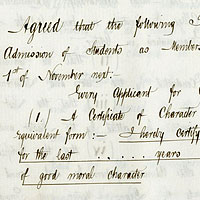 Agreed that the following
Admission of Students as Members
1st of November next:-
Every Applicant for
(1.) A Certificate of Character
Equivalent form:- I hereby certify
for the last . . . . . . . years
of good moral character